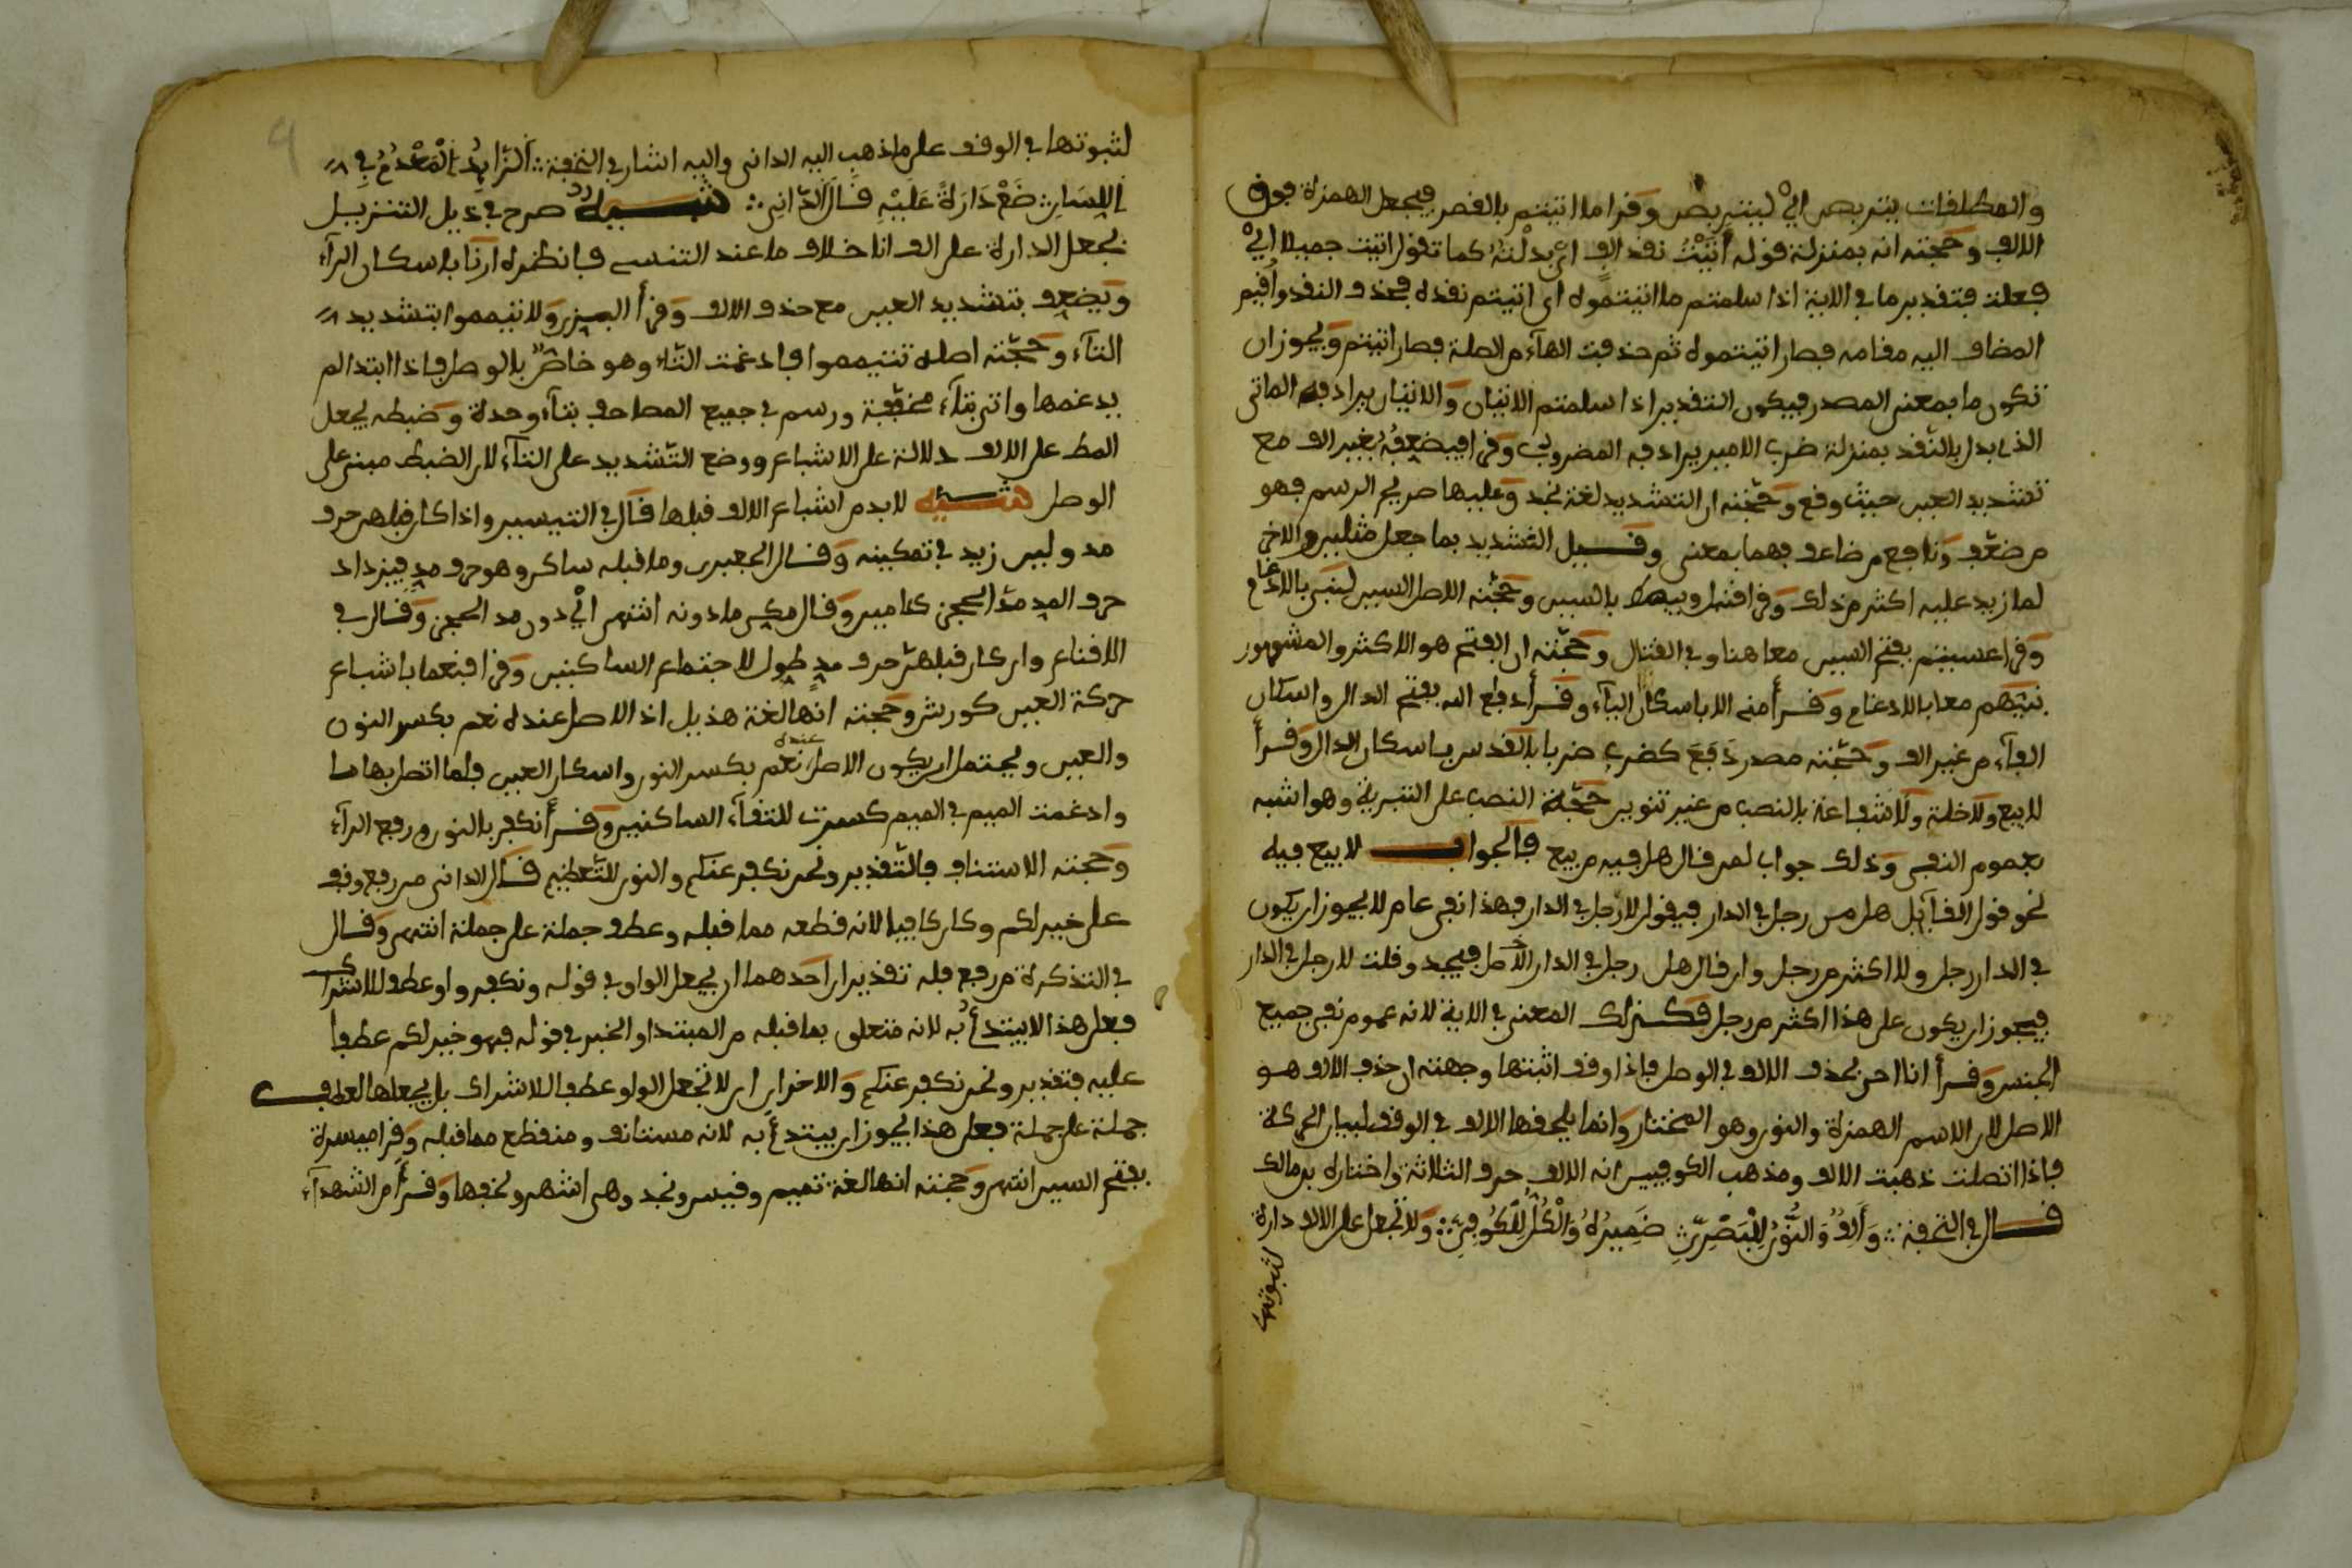 والمطلقات يتربصن اي ليتربصن وقرا ما اتيتم بالقصر فيجعل الهمزة فوق
الالف وحجته انه بمنزلة قوله أتيت نقد الف اي بذلته كما تقول اتيت جميلا اي
فعلت فتقدير ما في الاية اذا سلمتم ما اتيتموه اي اتيتم نقده فحذف النقد وأقيم
المضاف اليه مقامه فصار اتيتموه ثم حذفت الهاء من الصلة فصار اتيتم ويجوز ان
تكون ما بمعنى المصدر فيكون التقدير اذا سلمتم الاتيان والاتيان يراد به الماتى
الذي يدل بالنقد بمنزلة ضرب الامير يراد به المضروب وقرا فيضعفه بغير الف مع
تشديد العين حيث وقع وحجته ان التشديد لغة نجد وعليها صريح الرسم فهو
من ضعّف ونافع من ضاعف فهما بمعنى وقيل التشديد بما جعل مثليين والاخر
لما زيد عليه اكثر من ذلك وقرا قنبل ويبسط بالسين وحجته الاصل السين
وقرا عسيتم بفتح السين معا هنا وفي القتال وحجته ان الفتح هو الاكثر والمشهور
معا بالادغام وقرأ منى الا باسكان الياء وقرأ دفع الله بفتح الدال واسكان
الفاء من غير الف وحجته مصدر دَفَعَ كضرب ضربا بالقدس باسكان الدال وقرأ
لا بيع ولا خلة ولا شفاعة بالنصب من غير تنوين حجته النصب على التبرية وهو اشبه
بعموم النفي وذلك جواب لمن قال هل فيه من بيع فالجواب لا بيع فيه
نحو قول القآئل هل من رجل في الدار فيقول لا رجل في الدار فهذا نفي عام لا يجوز ان يكون
في الدار رجل ولا اكثر من رجل وان قال هل رجل في الدار الاصل فيجيد وقلت لا رجل في الدار
فيجوز ان يكون على هذا اكثر من رجل فكذلك المعنى في الاية لانه عموم نفي جميع
الجنس وقرأ انا احى بحذف الالف في الوصل فاذا وقف اثبتها وجهته ان حذف الالف هو
الاصل لان الاسم الهمزة والنون وهو المختار وانما يلحقها الالف في الوقف لبيان الحركة
فاذا اتصلت ذهبت الالف ومذهب الكوفيين انه الالف حرف الثلاثة واختاره بن مالك
قال في التحفة وَأَلِفٌ وَالنُّونُ لِلْبَصْرِيِّ ضَمِيرُهُ وَالْكُلُّ لِلْكُوفِيِّ ولا تجعل على الالف دارة
لثبوتها
لثبوتها في الوقف على ما ذهب اليه الداني واليه اشار في التحفة الزَّايِدُ الْمُعْدَمُ فِي
اللِّسَانِ ضَعْ دَارَةً عَلَيْهِ قَالَ الدَّانِي تنبيه صرح في ذيل التنزيل
بجعل الدارة على الف انا خلاف ما عند التنسي فانظره ارنا باسكان الرآء
ويضعف بتشديد العين مع حذف الالف وقرأ البزي ولا تيمموا بتشديد
التآء وحجته اصله تتيمموا فادغمت التاء وهو خاص بالوصل فاذا ابتدا لم
يدغمها واتى بتآء مخففة ورسم في جميع المصاحف بتآء وحدة وضبطه يجعل
المط على الالف دلالة على الاشباع ووضع التشديد على التآء لان الضبط مبني على
الوصل تنبيه لا بد من اشباع الالف قبلها قال في التيسير واذا كان قبلهن حرف
مد ولين زيد في تمكينه وقال الجعبري وما قبله ساكن وهو حرف مد فيزداد
حرف المد مدّا لحجز كامين وقال مكي ما دونه انتهى اي دون مد الحجز وقال في
الاقناع وان كان قبلهن حرف مد طول لاجتماع الساكنين وقرا فنعما باشباع
حركة العين كورش وحجته انها لغة هذيل اذ الاصل عنده نعم بكسر النون
والعين ويحتمل ان يكون الاصل عنده نعم بكسر النون واسكان العين فلما اتصل بها ما
وادغمت الميم في الميم كسرت لالتقاء الساكنين وقرأ نكفر بالنون ورفع الرآء
وحجته الاستئناف فالتقدير ونحن نكفر عنكم والنون للتعظيم قال الداني من رفع وقف
على خير لكم وكان كافيا لانه قطعه مما قبله وعطف جملة على جملة انتهى وقال
في التذكرة من رفع فله تقديران احدهما ان يجعل الواو في قوله ونكفر واو عطف للاشراك
فعلى هذا لا يبتدأ به لانه متعلق بما قبله من المبتدا والخبر في قوله فهو خير لكم عطفا
عليه فتقدير ونحن نكفر عنكم والاخر ان لا تجعل الواو عطفا للاشراك بل يجعلها لعطف
جملة على جملة فعلى هذا يجوز ان يبتدأ به لانه مستانف ومنقطع مما قبله وقرا ميسرة
بفتح السين انتهى وحجته انها لغة تميم وقيس ونجد وهي اشهر ونحوها وقرأ من الشهدآء